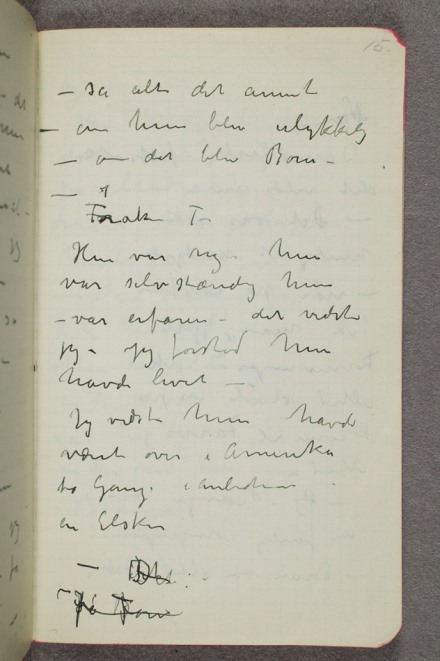 15.
– sa alt det annet
– om hun blev ulykkelig
– om det blev Barn –
– og
Forakte
Hun var rig – hun
var selvstændig hun
– var erfaren – det vidste
jeg – jeg forstod hun
havde levet –
Jeg vidste hun havde
været over i Amerika
to Gange i anledn
en Elsker
– Det